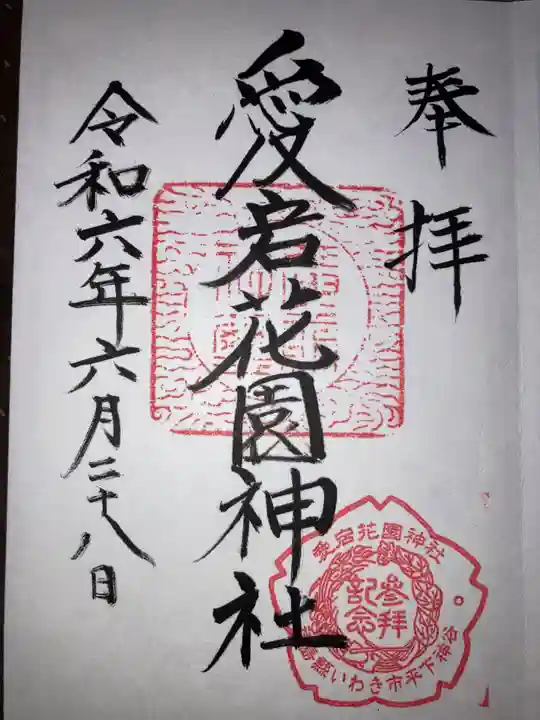 奉拝
愛宕花園神社
令和六年六月二十八日
愛宕花園神社
参拝
記念
島縣いわき市平下神谷